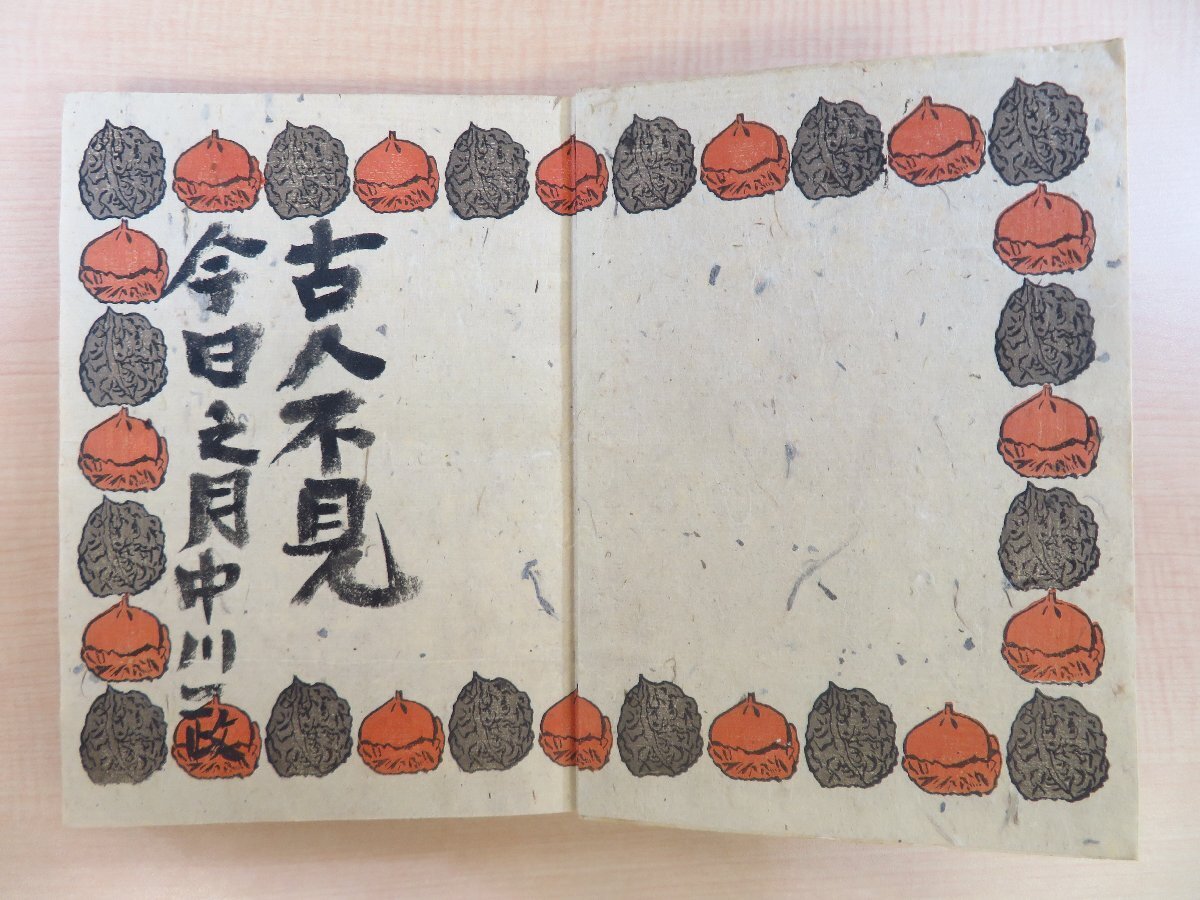 古人不見
今日之月中川一政